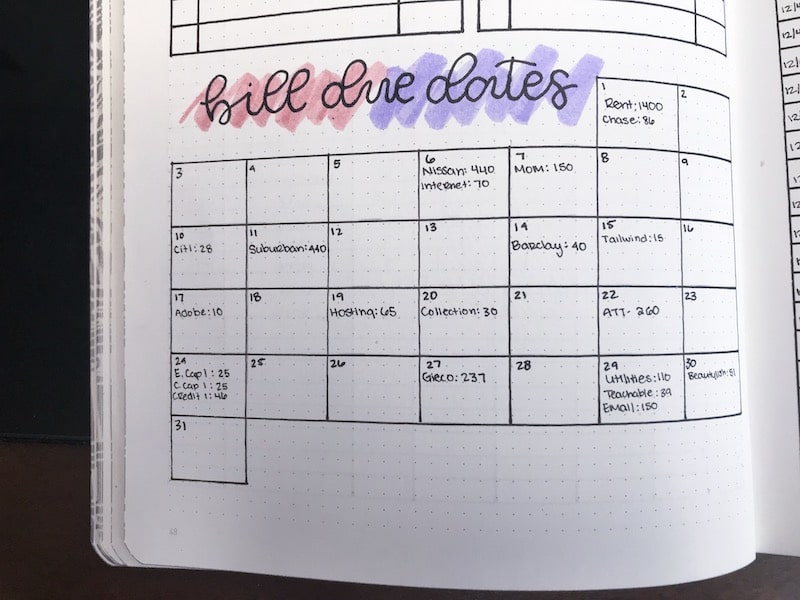 bill due dates
1
Rent: 1400
Chase: 86
2
3
4
5
6
Nissan: 440
Internet: 70
7
Mom: 150
8
9
10
Citi: 28
11
Suburban: 440
12
13
14
Barclay: 40
15
Tailwind: 15
16
17
Adobe: 10
18
19
Hosting: 65
20
Collection: 30
21
22
ATT- 260
23
24
E. Cap 1: 25
C. Cap 1: 25
Credit 1: 46
25
26
27
Gieco: 237
28
29
Utilities: 110
Teachable: 39
Email: 150
30
31
48